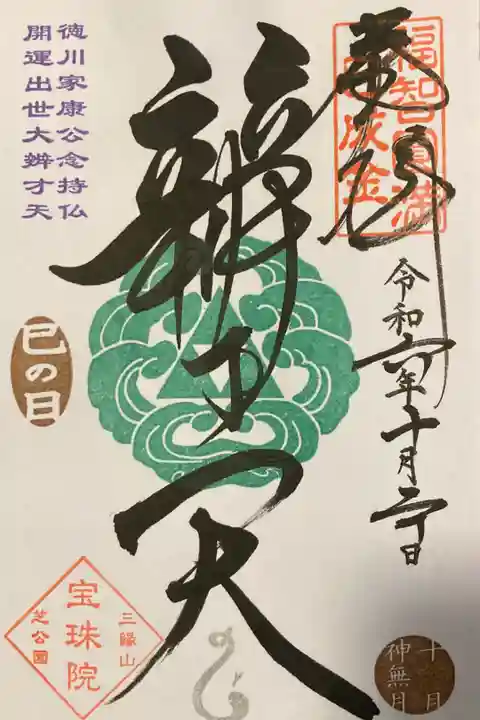 奉拝
福智圓満
令和六年十月
辨才天
徳川家康公念持仏
開運出世大辨才天
巳の日
三縁山
宝珠院
芝公園
十月
神無月